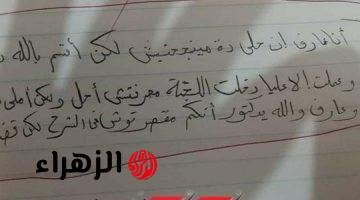 أنا عارف إن حلى دة مينجحنيش لكن أنتم بالله
وعملت الا عليا دخلت اللجنة معرفتش أحل ولكن أملى
وعارف والله يدكتور أنكم مقصرتوش فى الشرح لكن
الزهراء